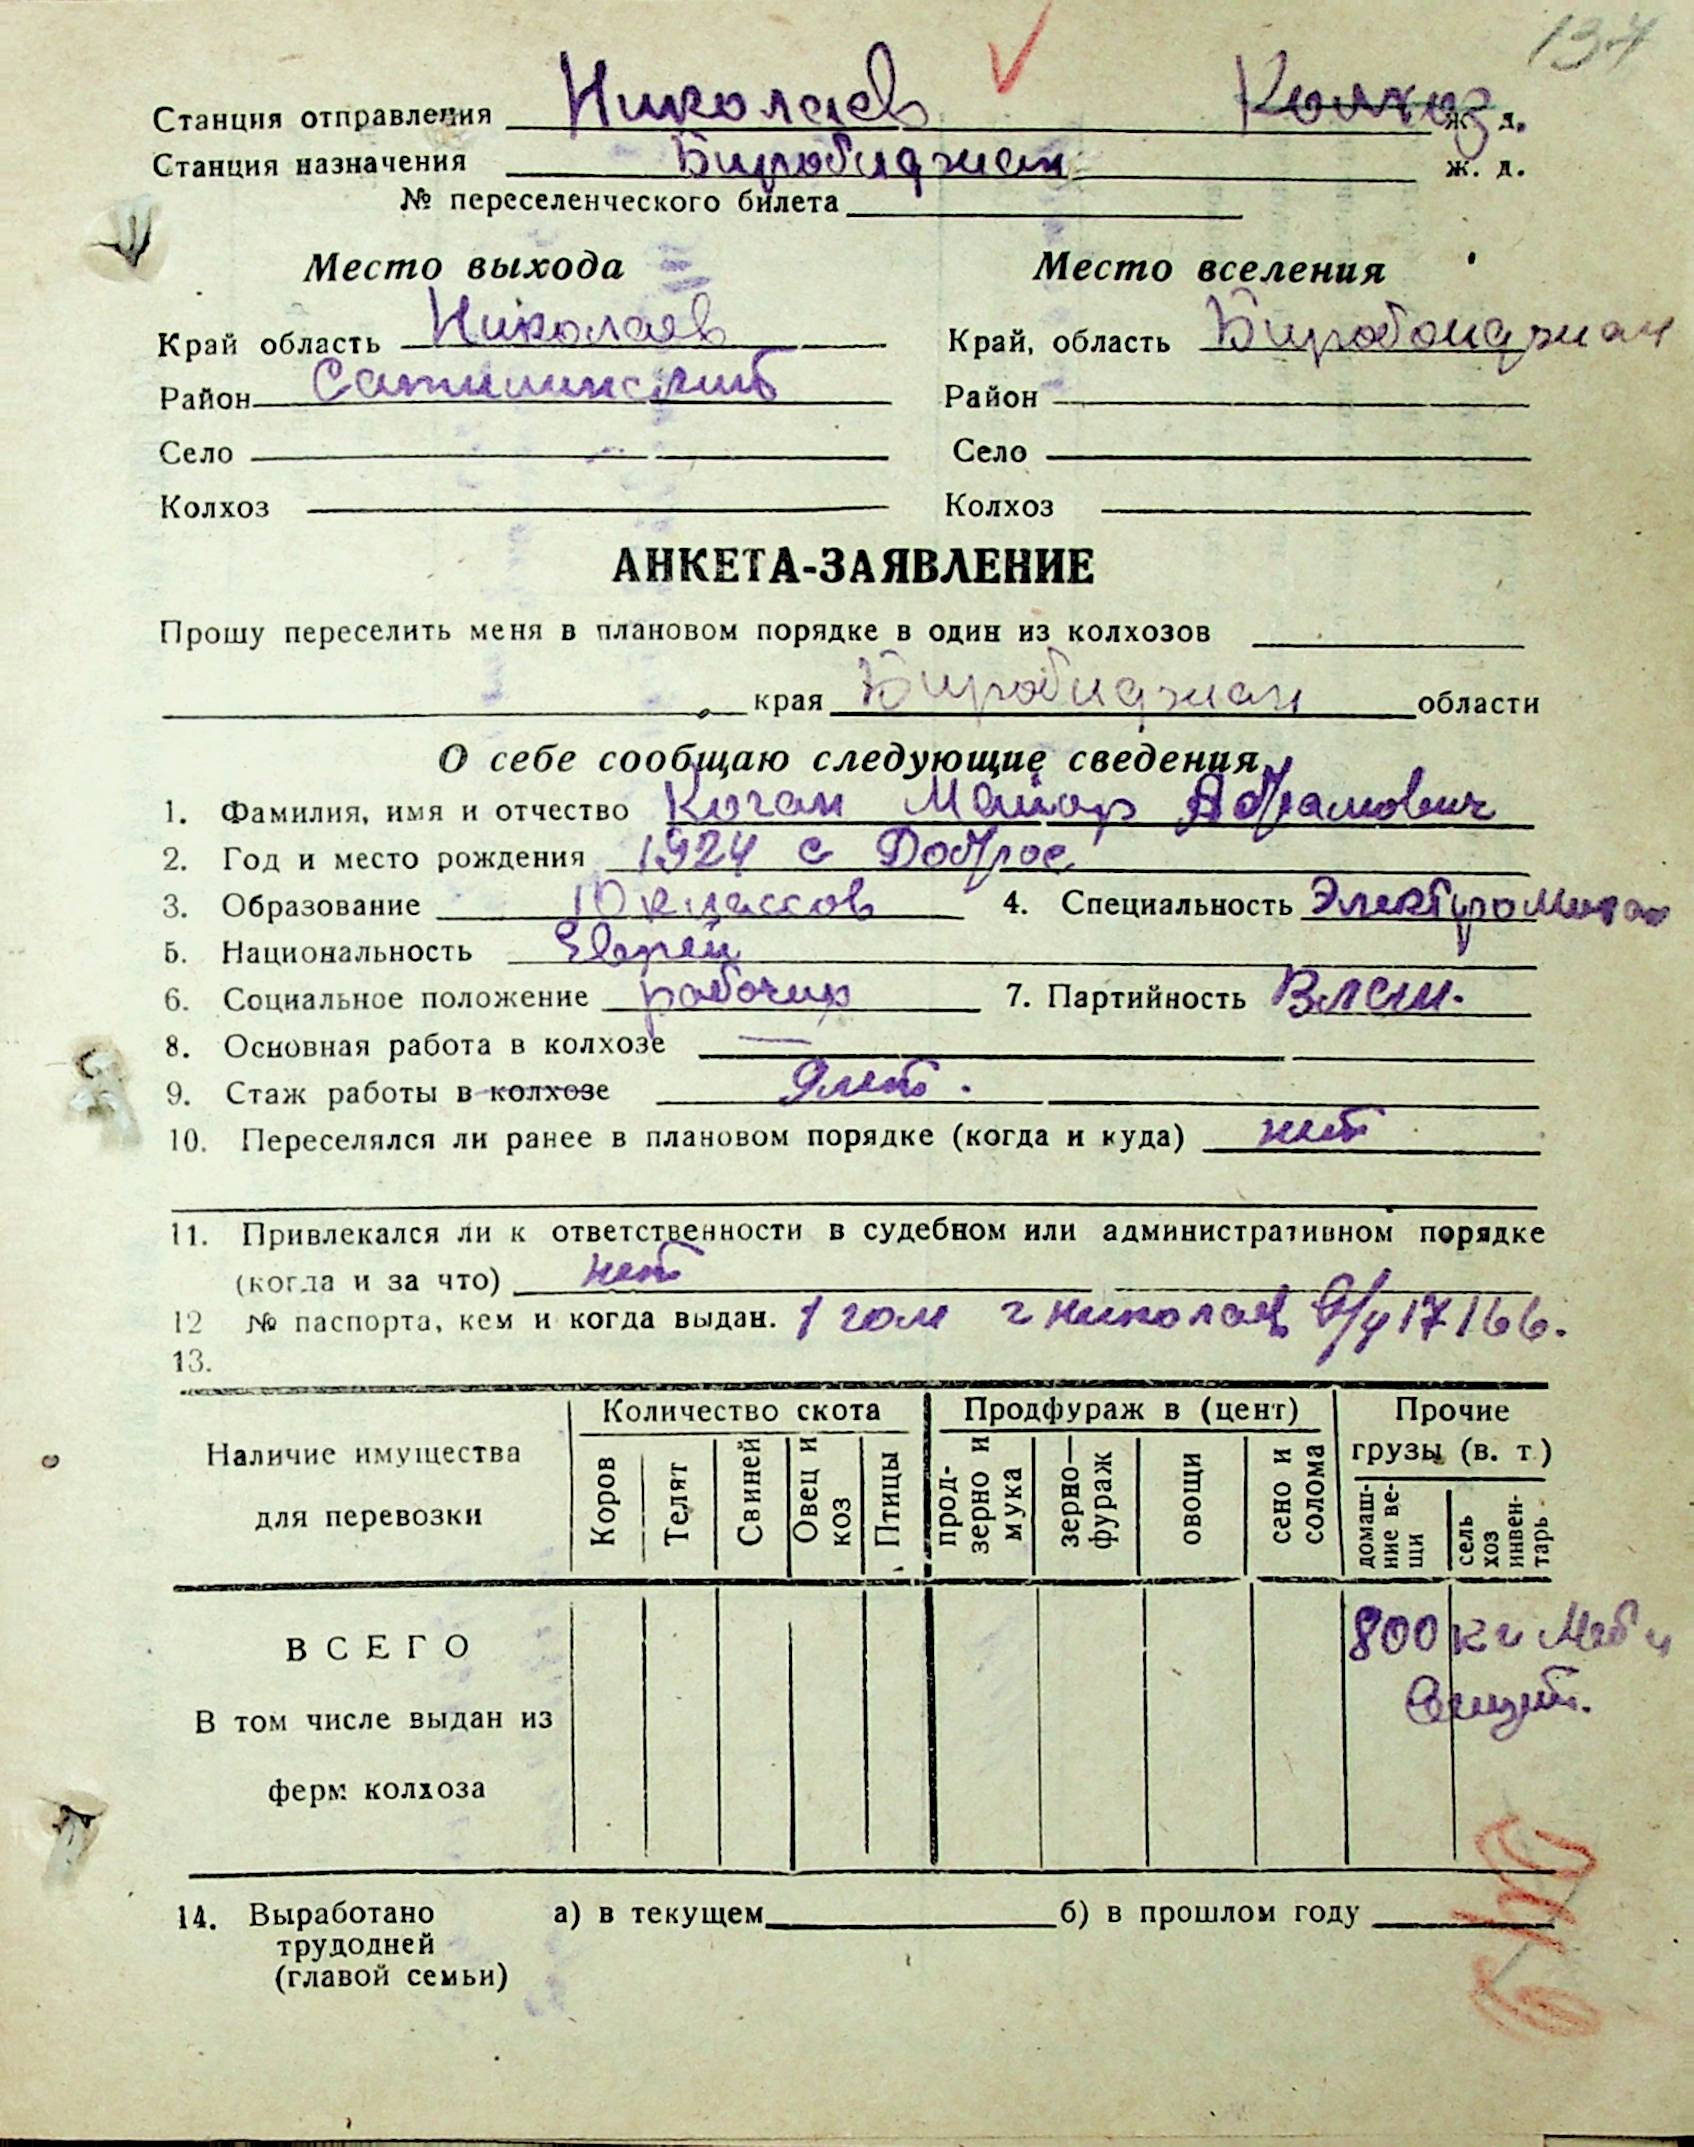 137
Станция отправления Николаев Колхоз ж. д.
Станция назначения Биробиджан ж. д.
№ переселенческого билета
Место выхода Место вселения
Край область Николаев Край, область Биробиджан
Район Район
Село Село
Колхоз Колхоз
АНКЕТА-ЗАЯВЛЕНИЕ
Прошу переселить меня в плановом порядке в один из колхозов
края Биробиджан области
О себе сообщаю следующие сведения
1. Фамилия, имя и отчество Коган Майор Абрамович
2. Год и место рождения 1924 с Доброе
3. Образование 10 классов 4. Специальность
5. Национальность Еврей
6. Социальное положение рабочий 7. Партийность Влксм.
8. Основная работа в колхозе —
9. Стаж работы в колхозе 9 лет.
10. Переселялся ли ранее в плановом порядке (когда и куда) нет
11. Привлекался ли к ответственности в судебном или административном порядке
(когда и за что) нет
12 № паспорта, кем и когда выдан. 1 гом г Николаев 17166.
13.
Наличие имущества для перевозки
Количество скота Продфураж в (цент) Прочие грузы (в. т)
Коров Телят Свиней Овец и коз Птицы прод-зерно и мука зерно—фураж овощи сено и солома домаш-ние ве-щи сель хоз инвен-тарь
ВСЕГО 800 кг
В том числе выдан из
ферм колхоза
14. Выработано а) в текущем б) в прошлом году
трудодней
(главой семьи)